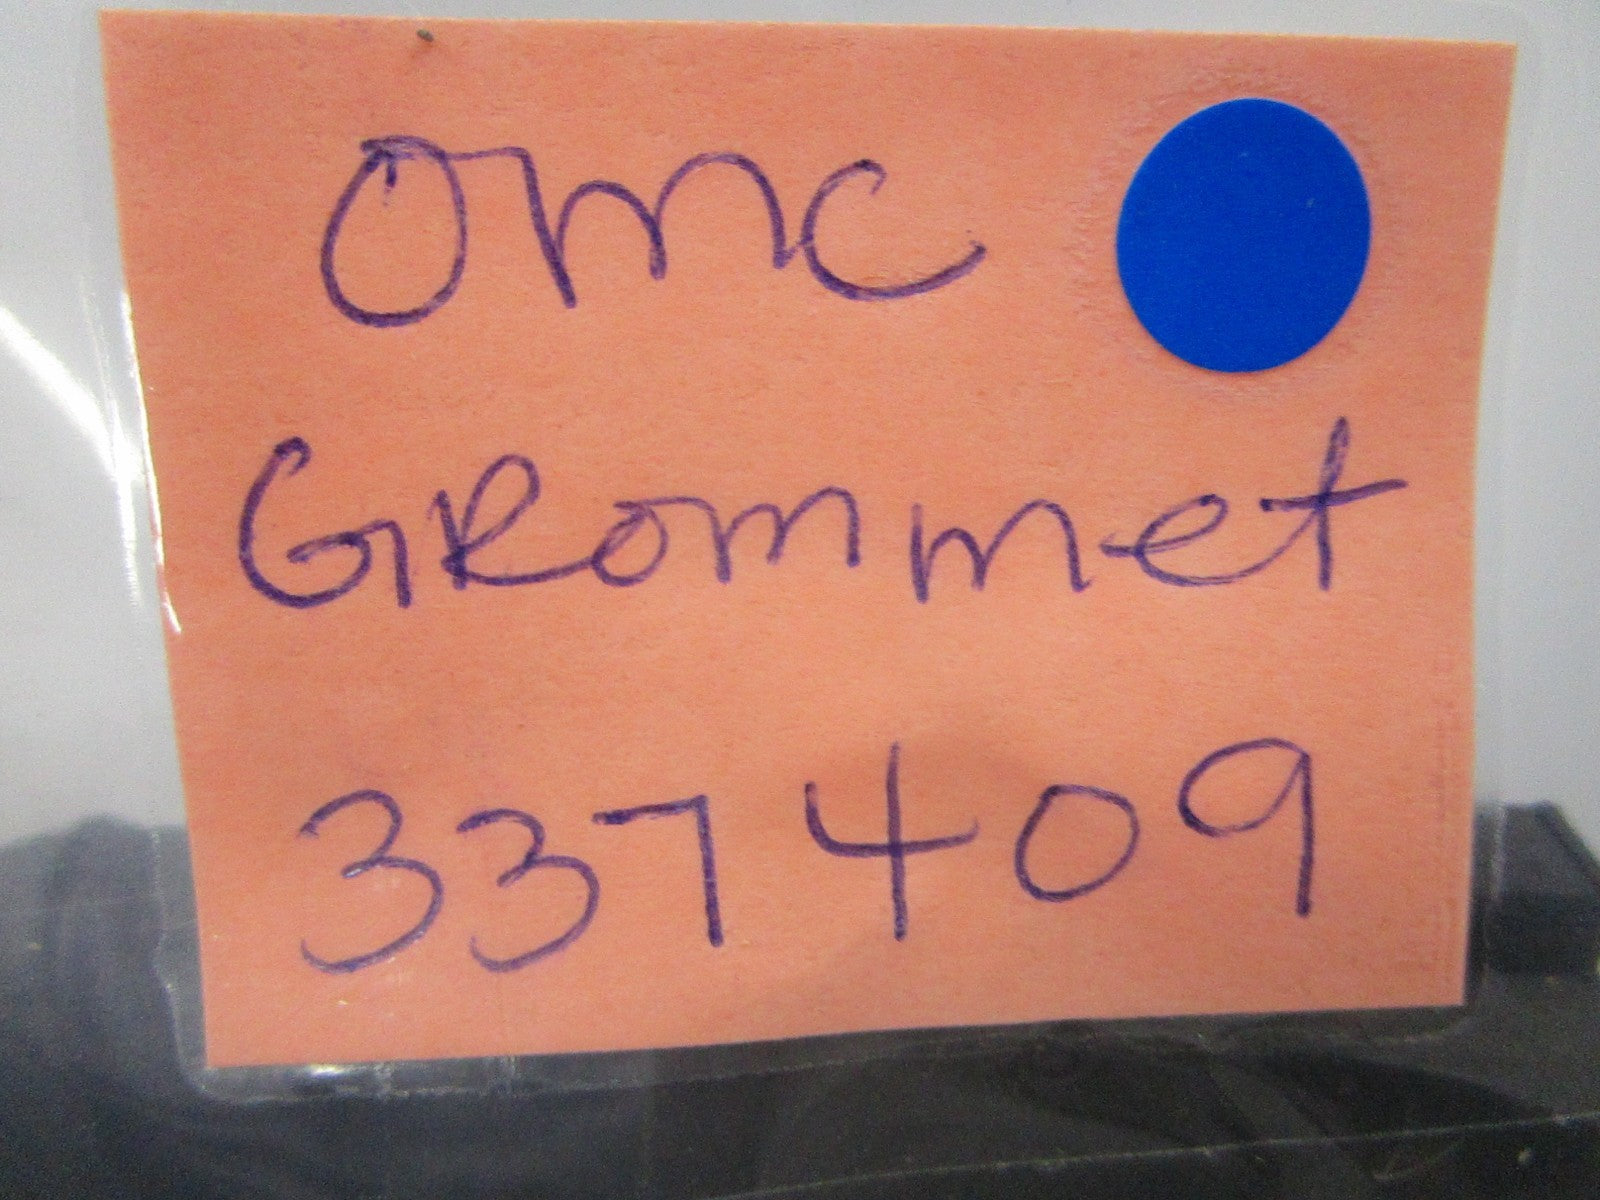 omc
GRommet
337409